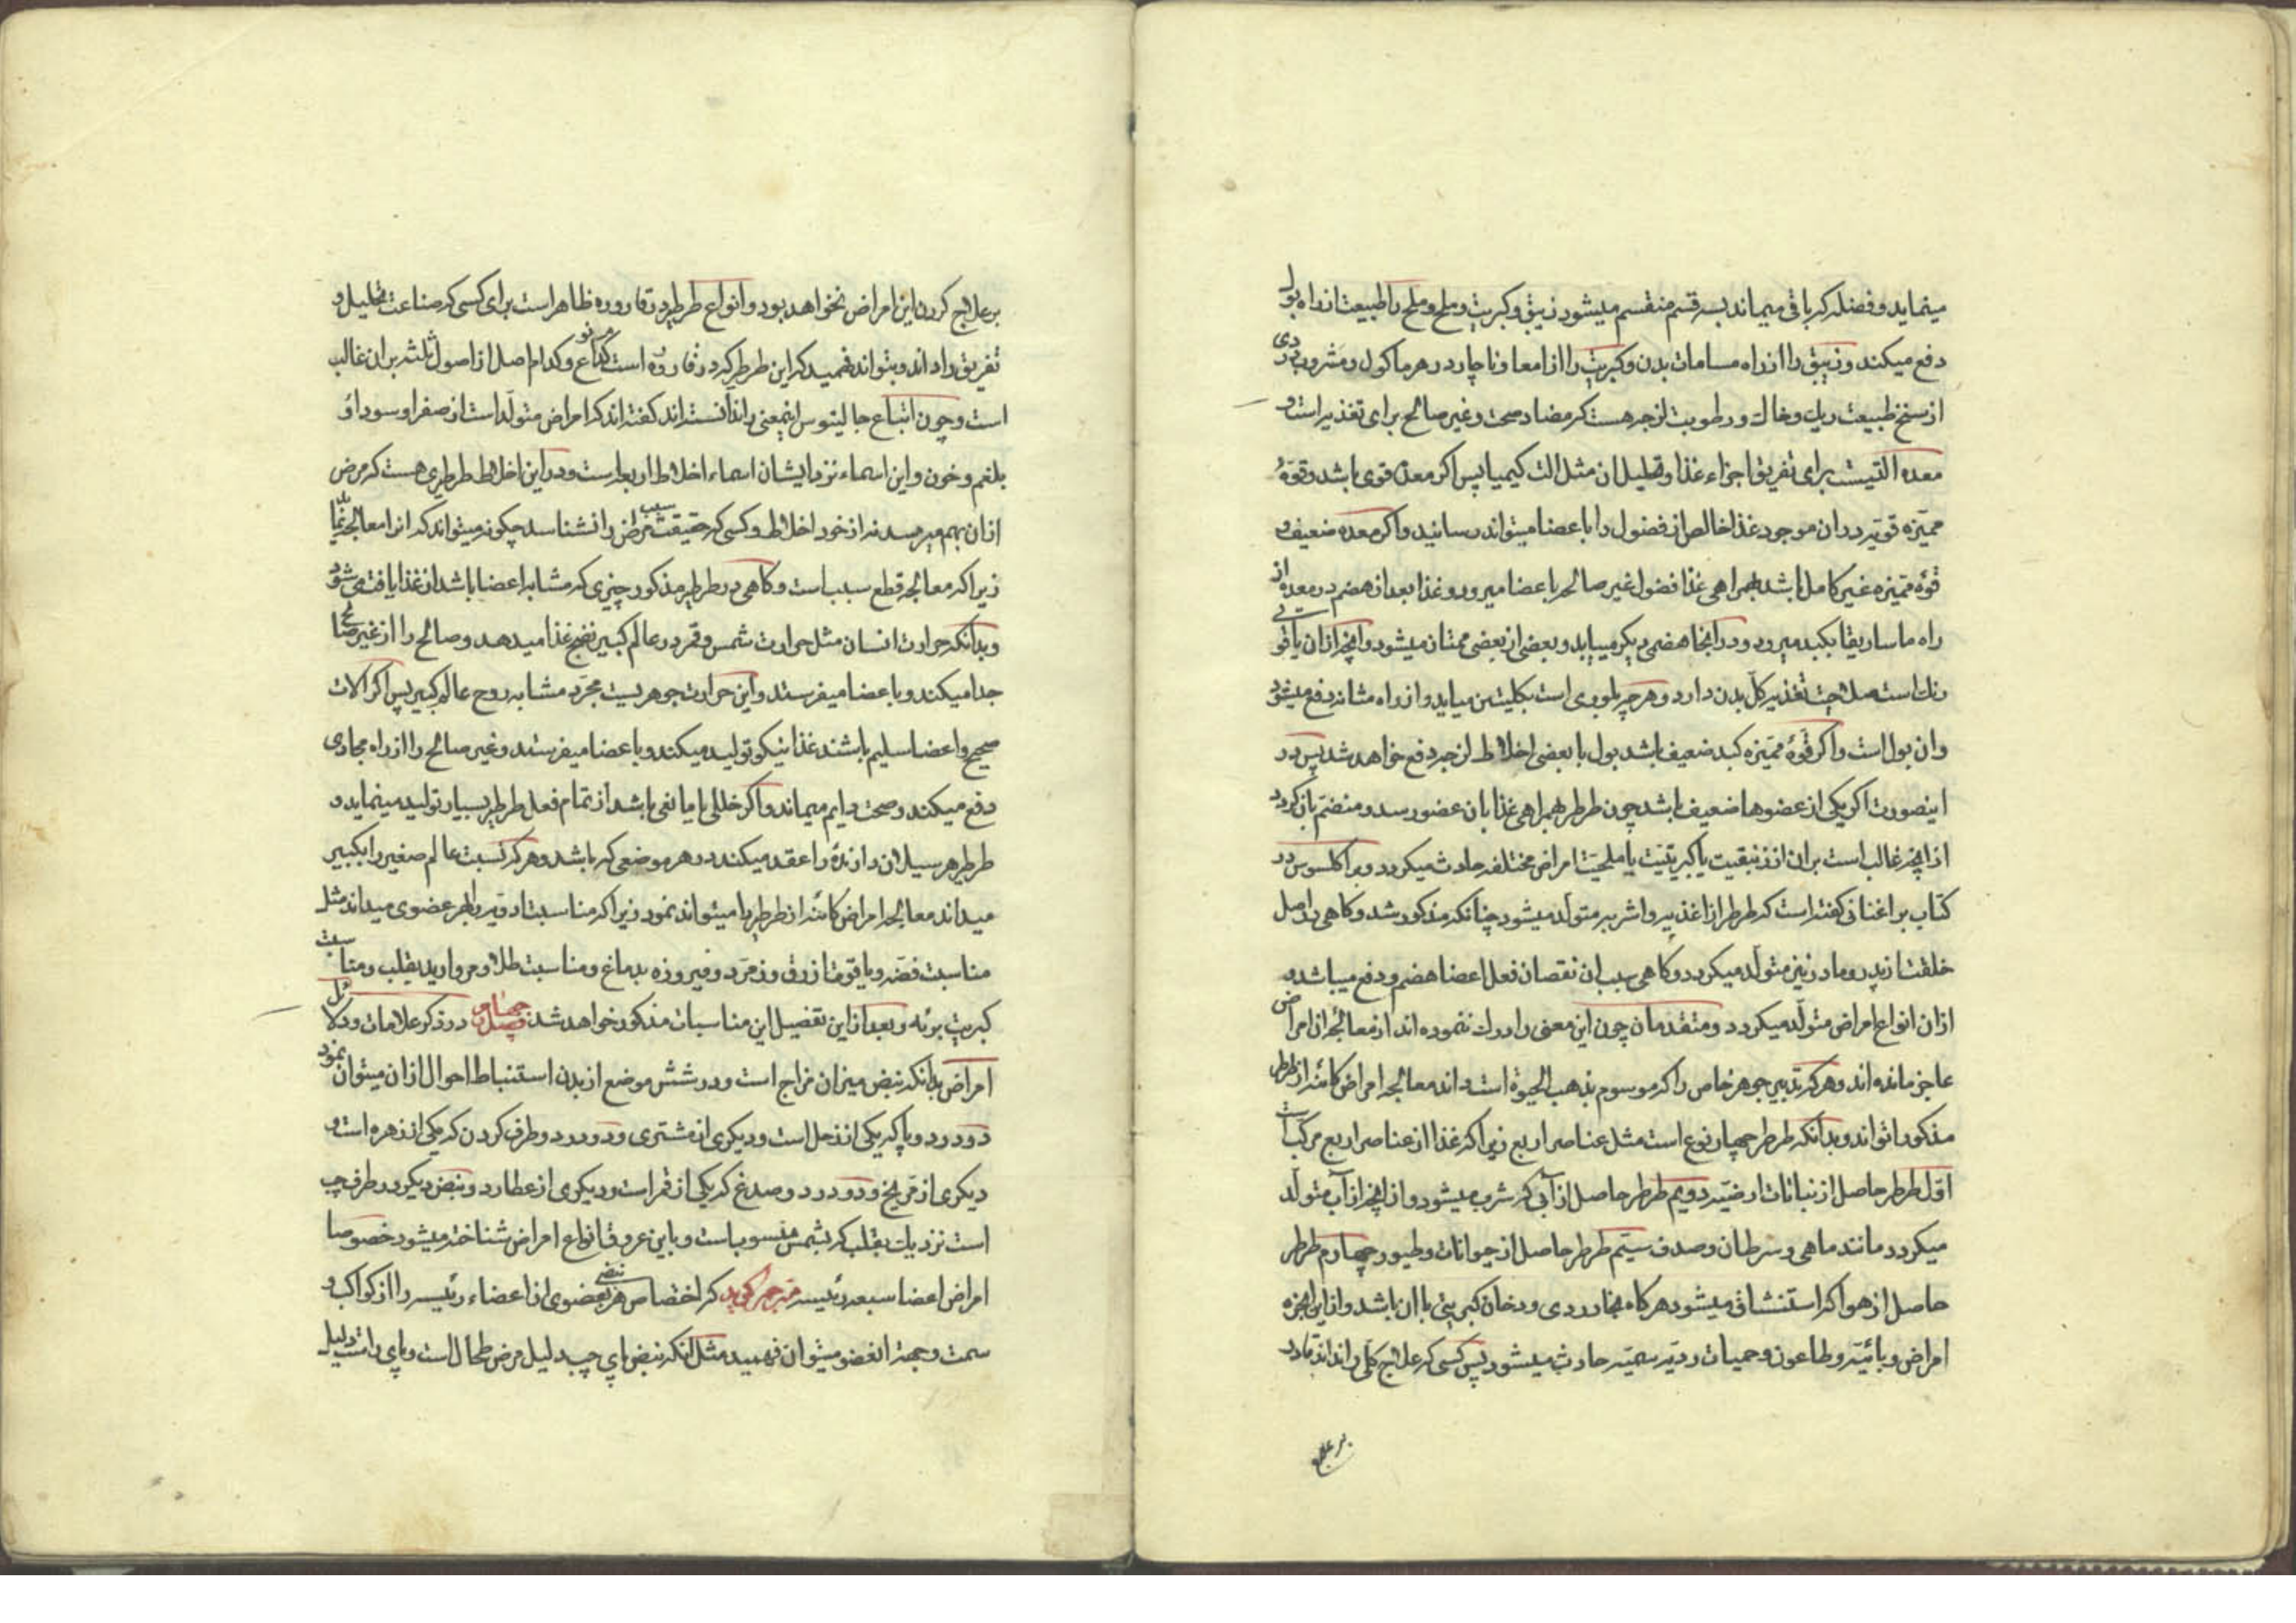 مینماید و فضله که باقی میماند بسه قسم منقسم میشود زیبق و کبریت و ملح و ملح را طبیعت از راه بول
دفع میکند و زیبق را از راه مسامات بدن و کبریت را از امعا و ناچار در هر ماکول و مشروب دردی
از سنخ طبیعت ریک و خاک و رطوبت لزجه هست که مضاد صحت و غیر صالح برای تغذیه است و
معده التیست برای تفریق اجزاء غذا و تحلیل ان مثل الت کیمیا پس اکر معده قوی باشد و قوهٔ
ممیّزه قویّه در ان موجود غذا خالص از فضول را باعضا میتواند رسانید و اکر معده ضعیف و
قوّه ممیّزه غیر کامل باشد بهمراهی غذا فضول غیر صالحه باعضا میرود و غذا بعد از هضم در معده از
راه ماساریقا بکبد میرود و در انجا هضمی دیکر مییابد و بعضی از بعضی ممتاز میشود و انچه از ان یاقوتی
رنک است صلاحیت تغذیه کل بدن دارد و هر چه بلوری است بکلیتین میاید و از راه مثانه دفع میشود
و ان بول است و اکر قوّهٔ ممیّزه کبد ضعیف باشد بول با بعضی اخلاط لزجه دفع خواهد شد پس در
اینصورت اکر یکی از عضوها ضعیف باشد چون طرطر بهمراهی غذا بان عضو رسد و منضمّ بان کردد
از انچه غالب است بران از زیبقیت یا کبریتیّت یا ملحیّت امراض مختلفه حادث میکردد و براکلسوس در
کتاب براغنانی کفته است که طرطر از اغذیه و اشربه متولد میشود چنانکه مذکور شد و کاهی در اصل
خلقت از پدر و مادر نیز متولد میکردد و کاهی سبب ان نقصان فعل اعضا هضم و دفع میباشد و
ازان انواع امراض متولّد میکردد و متقدمان چون این معنی را درک ننموده اند از معالجه ان امراض
عاجز مانده اند و هر که تدبیر جوهر خاص را که موسوم بذهب الحیوة است داند معالجه امراض کائنه از طرطر
مذکور تواند و بدانکه طرطر چهار نوع است مثل عناصر اربع زیرا که غذا از عناصر اربع مرکب است
اوّل طرطر حاصل از نباتات ارضیّه دویم طرطر حاصل از آبی که شرب میشود و از انچه از آب متولّد
میکردد مانند ماهی و سرطان و صدف سیّم طرطر حاصل از حیوانات و طیور چهارم طرطر
حاصل از هوا که استنشاق میشود هر کاه بخار ردی و دخان کبریتی با ان باشد و از این ابخره
امراض وبائیّه و طاعون و حمیات ردیّه سمیّه حادث میشود پس کسی که علاج کلّی را نداند قادر
بر علاج
بر علاج کردن این امراض نخواهد بود و انواع طرطر در قاروره ظاهر است برای کسی که صناعت تحلیل و
تفریق را داند و بتواند فهمید که این طرطر که در قاروره است از کدام نوع و کدام اصل از اصول ثلثه بران غالب
است و چون اتباع جالینوس اینمعنی را ندانسته اند کفته اند که امراض متولّد است از صفرا و سودا و
بلغم و خون و این اسماء نزد ایشان اسماء اخلاط اربعه است و در این اخلاط طرطری هست که مرض
ازان بهم میرسد نه از خود اخلاط و کسی که حقیقت سبب مرض را نشناسد چکونه میتواند که انرا معالجه نماید
زیرا که معالجه قطع سبب است و کاهی در طرطر مذکور چیزی که مشابه اعضا باشد از غذا یافت می شود
و بدانکه حرارت انسان مثل حرارت شمس و قمر در عالم کبیر نضج غذا میدهد و صالح را از غیر صالح
جدا میکند و باعضا میفرستد و این حرارت جوهریست مجرّد مشابه روح عالم کبیر پس اکر الات
صحیح و اعضا سلیم باشند غذا نیکو تولید میکند و باعضا میفرستد و غیر صالح را از راه مجاری
دفع میکند و صحت دایم میماند و اکر خللی یا مانعی باشد از تمام فعل طرطر بسیار تولید مینماید و
طرطر هر سیلان دارنده را عقد میکند در هر موضعی که باشد و هر که نسبت عالم صغیر را بکبیر
میداند معالجه امراض کائنه از طرطر را میتواند نمود زیرا که مناسبت ادویه را بهر عضوی میداند مثل
مناسبت فضّه و یاقوت ازرق و زمرّد و فیروزه بدماغ و مناسبت طلا و مروارید بقلب و مناسبت
کبریت بریه و بعد از این تفضیل این مناسبات مذکور خواهد شد فصل چهارم در ذکر علامات و دلائل
امراض بدانکه نبض میزان مزاج است و در شش موضع از بدن استنباط احوال ازان میتوان نمود
دو در دو پا که یکی از زحل است و دیکری از مشتری و دو در دو طرف کردن که یکی از زهره است و
دیکری از مرّیخ و دو در دو صدغ که یکی از قمر است و دیکری از عطارد و نبض دیکر در طرف چپ
است نزدیک بقلب که بشمس منسوب است و باین عروق انواع امراض شناخته میشود خصوصا
امراض اعضا سبعه رئیسه مترجم کوید که اختصاص هر نبضی بعضوی از اعضاء رئیسه را از کواکب و
سمت و جهة انعضو میتوان فهمید مثل انکه نبض پای چپ دلیل مرض طحال است و پای راست دلیل